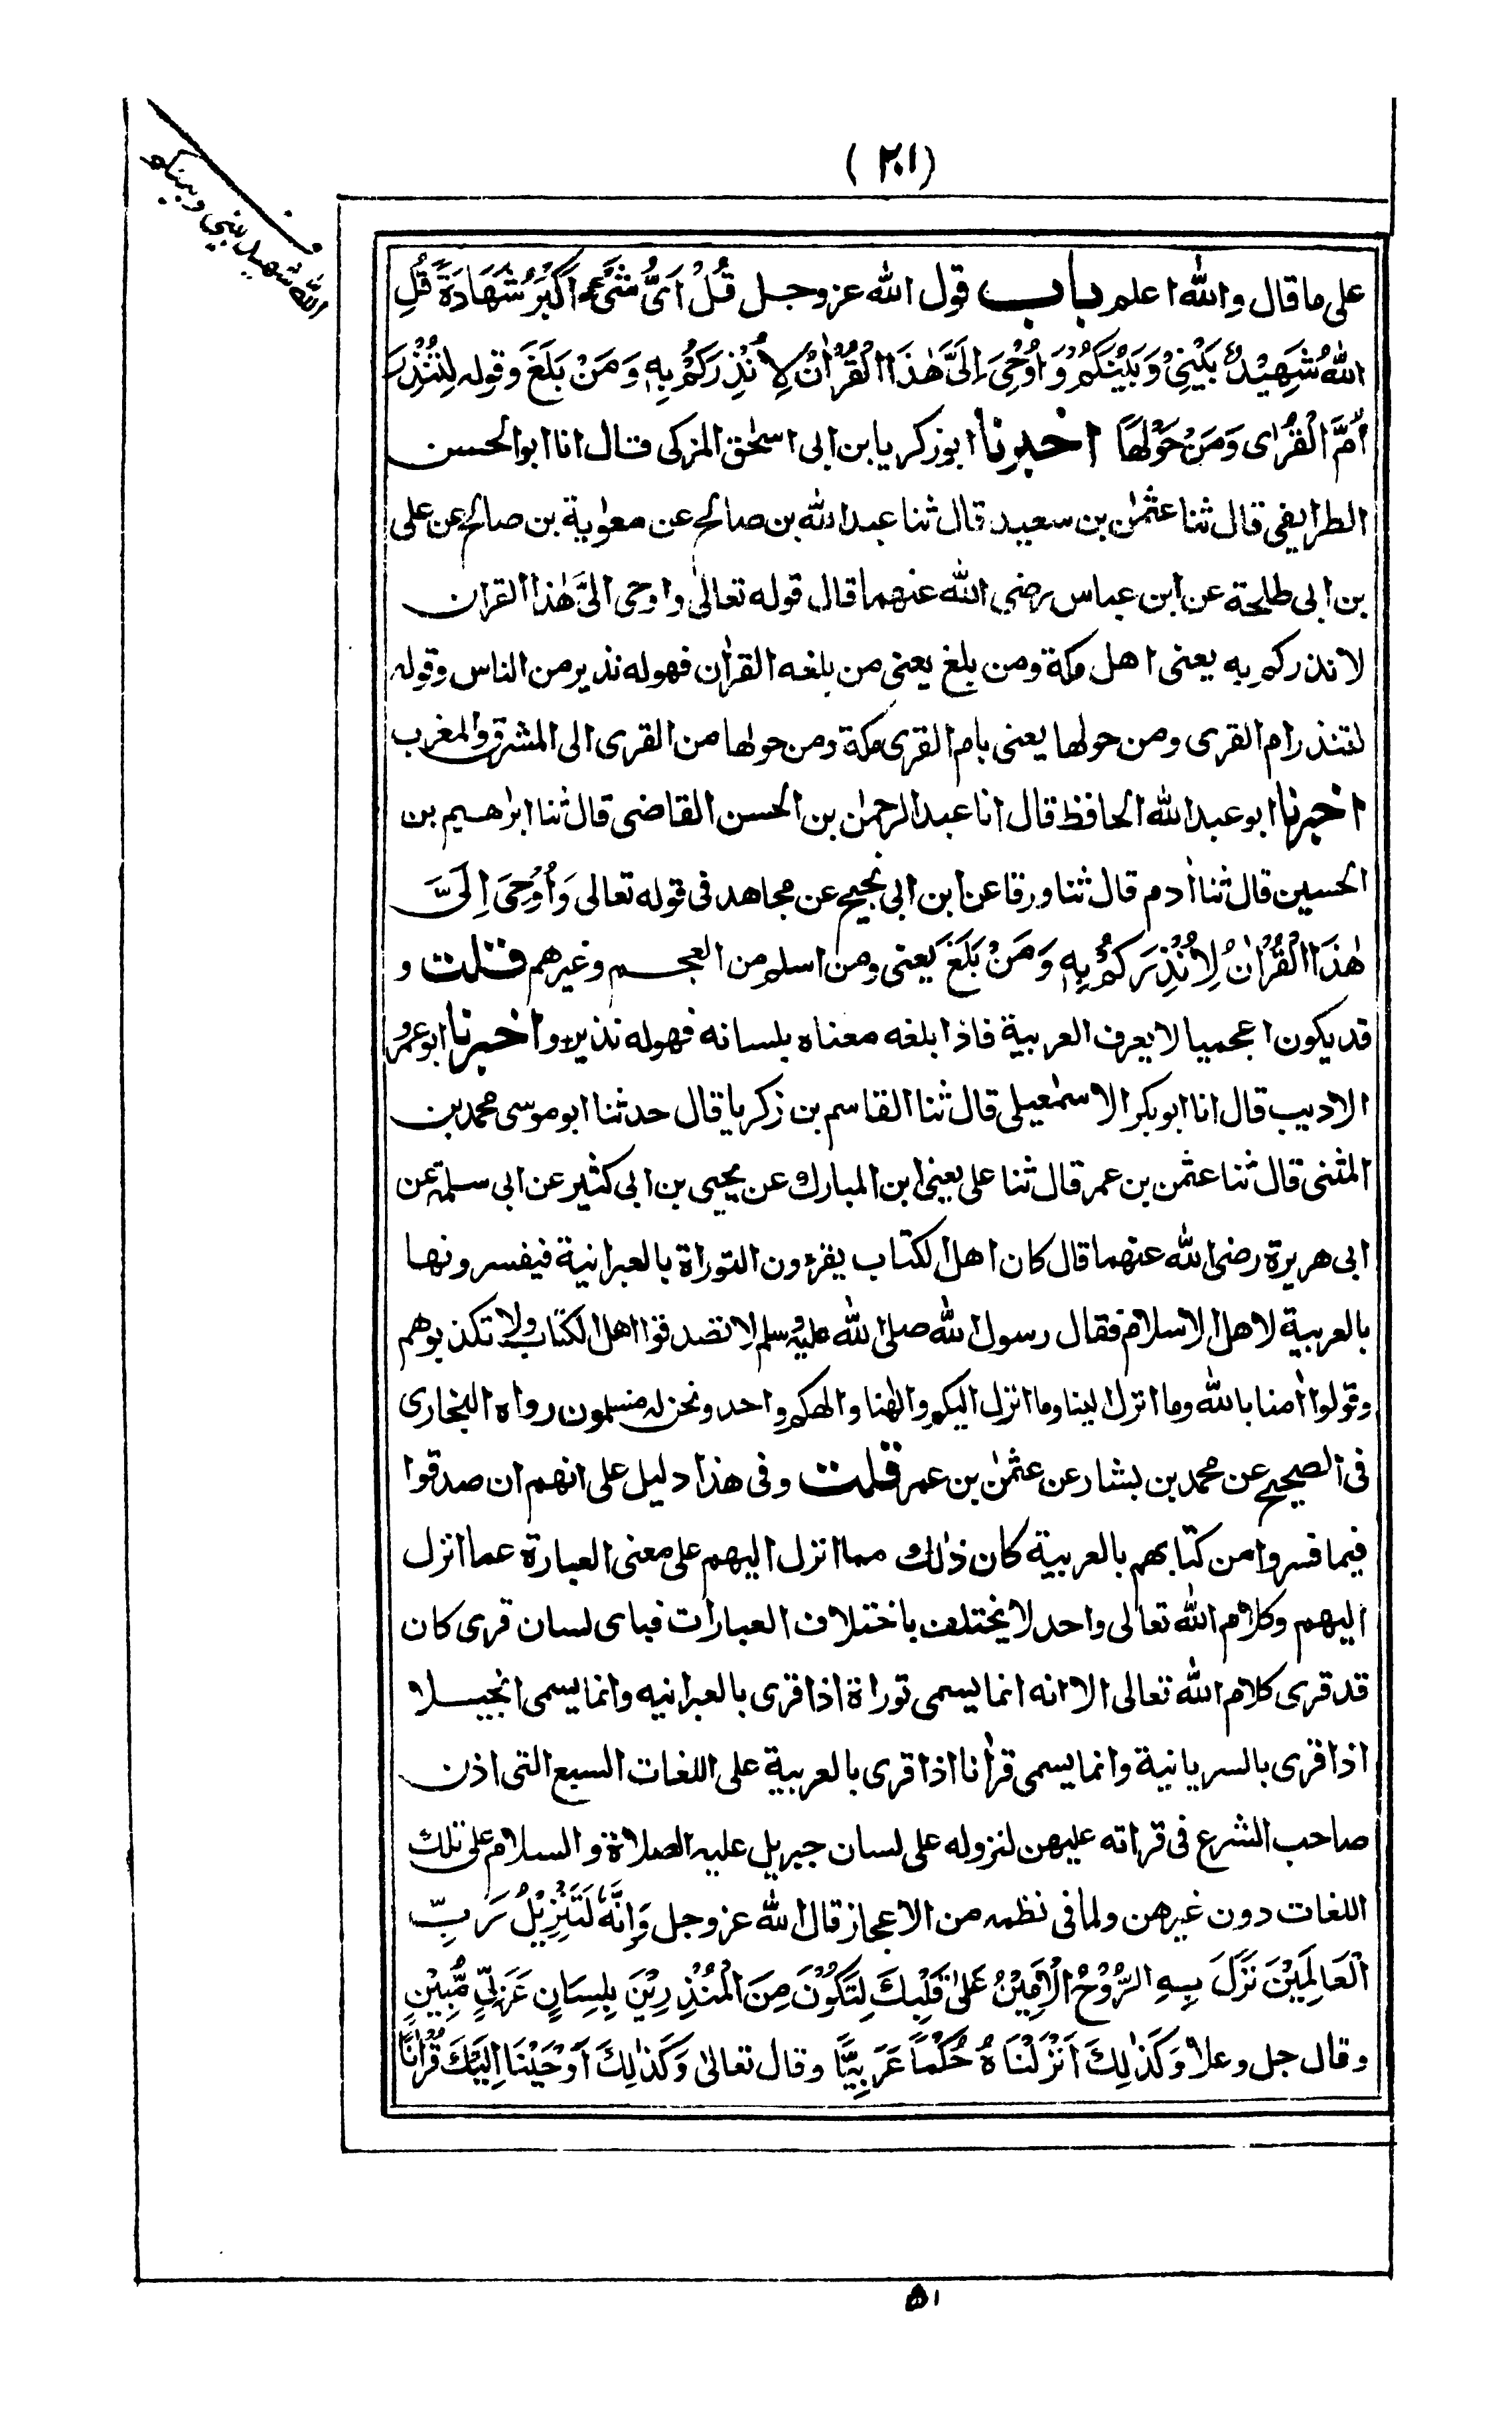 (٢٠١)
الله شهيد بيني وبينكم
على ما قال والله اعلم باب قول الله عزوجل قُلْ اَىُّ شَىْءٍ اَكْبَرُ شَهَادَةً قُلِ
اللّٰهُ شَهِيْدٌ بَيْنِيْ وَبَيْنَكُمْ وَاُوْحِيَ اِلَيَّ هٰذَا الْقُرْاٰنُ لِاُنْذِرَكُمْ بِهٖ وَمَنْ بَلَغَ وقوله لِتُنْذِرَ
اُمَّ الْقُرٰى وَمَنْ حَوْلَهَا اخبرنا ابوزكريا بن ابى اسحٰق المزكى قال انا ابو الحسن
الطرايفى قال ثنا عثمٰن بن سعيد قال ثنا عبد الله بن صالح عن معٰوية بن صالح عن على
بن ابى طلحة عن ابن عباس رضي الله عنهما قال قوله تعالٰى واوحى الىّ هٰذا القران
لانذركم به يعنى اهل مكة ومن بلغ يعنى من بلغه القرٰان فهو له نذير من الناس وقوله
لتنذر ام القرى ومن حولها يعنى بام القرى مكة ومن حولها من القرى الى المشرق والمغرب
اخبرنا ابو عبد الله الحافظ قال انا عبد الرحمٰن بن الحسن القاضى قال ثنا ابراهيم بن
الحسين قال ثنا اٰدم قال ثنا ورقا عن ابن ابى نجيح عن مجاهد فى قوله تعالى وَاُوْحِيَ اِلَيَّ
هٰذَا الْقُرْاٰنُ لِاُنْذِرَكُمْ بِهٖ وَمَنْ بَلَغَ يعنى ومن اسلم من العجم وغيرهم قلت و
قد يكون اعجميا لا يعرف العربية فاذا بلغه معناه بلسانه فهو له نذير واخبرنا ابو عمرو
الاديب قال انا ابو بكر الاسمٰعيلى قال ثنا القاسم بن زكريا قال حدثنا ابو موسى محمد بن
المثنى قال ثنا عثمن بن عمر قال ثنا على يعنى ابن المبارك عن يحيى بن ابى كثير عن ابى سلمة عن
ابى هريرة رضى الله عنهما قال كان اهل الكتاب يقرءون التوراة بالعبرانية فيفسرونها
بالعربية لاهل الاسلام فقال رسول الله صلى الله عليه وسلم لا تصدقوا اهل الكتاب ولا تكذبوهم
وقولوا اٰمنا بالله وما انزل الينا وما انزل اليكم والٰهنا والهكم واحد ونحن له مسلمون رواه البخارى
فى الصحيح عن محمد بن بشار عن عثمٰن بن عمر قلت وفى هذا دليل على انهم ان صدقوا
فيما فسروا من كتابهم بالعربية كان ذٰلك مما انزل اليهم على معنى العبارة عما انزل
اليهم وكلام الله تعالى واحد لا يختلف باختلاف العبارات فباى لسان قرى كان
قد قرى كلام الله تعالى الا انه انما يسمى توراة اذا قرى بالعبرانيه وانما يسمى انجيلا
اذا قرى بالسريانية وانما يسمى قرٰانا اذا قرى بالعربية على اللغات السبع التى اذن
صاحب الشرع فى قراته عليهن لنزوله على لسان جبريل عليه الصلاة والسلام على تلك
اللغات دون غيرهن ولما فى نظمه من الاعجاز قال الله عزوجل وَاِنَّهٗ لَتَنْزِيْلُ رَبِّ
الْعَالَمِيْنَ نَزَلَ بِهِ الرُّوْحُ الْاَمِيْنُ عَلٰى قَلْبِكَ لِتَكُوْنَ مِنَ الْمُنْذِرِيْنَ بِلِسَانٍ عَرَبِيٍّ مُّبِيْنٍ
وقال جل وعلا وَكَذٰلِكَ اَنْزَلْنَاهُ حُكْمًا عَرَبِيًّا وقال تعالىٰ وَكَذٰلِكَ اَوْحَيْنَا اِلَيْكَ قُرْاٰنًا
٥١